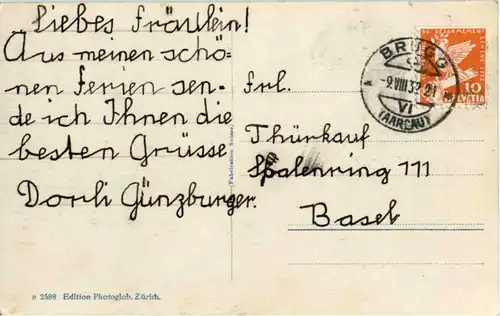 Liebes Fräulein!
Aus meinen schö-
nen Ferien sen-
de ich Ihnen die
besten Grüsse
Dorli Günzburger.
Frl.
Thürkauf
Spalenring 111
Basel
BRUGG
-9.VIII.32-21
VI
(AARGAU)
10
HELVETIA
e 2598 Edition Photoglob. Zürich.